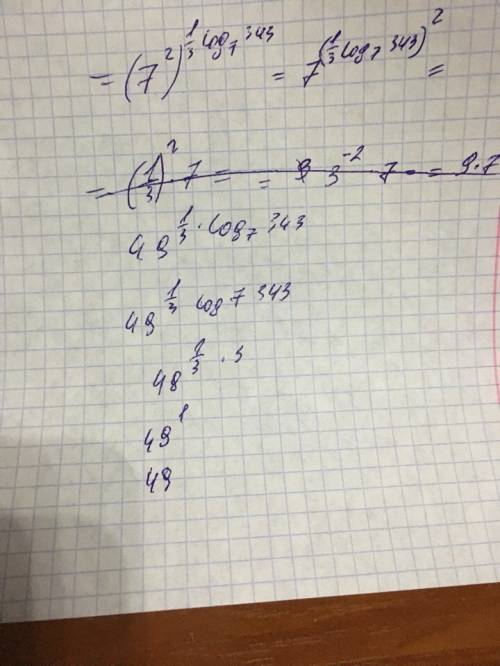 = (7²)^{1/3 log₇ 343} = 7^{(1/3 log₇ 343)²} =
= (1/3)² · 7 = = 9 3⁻² 7 = 9·7
49^{1/3 · log₇ 343}
49^{1/3 log 7 343}
49^{1/3 · 3}
49¹
49